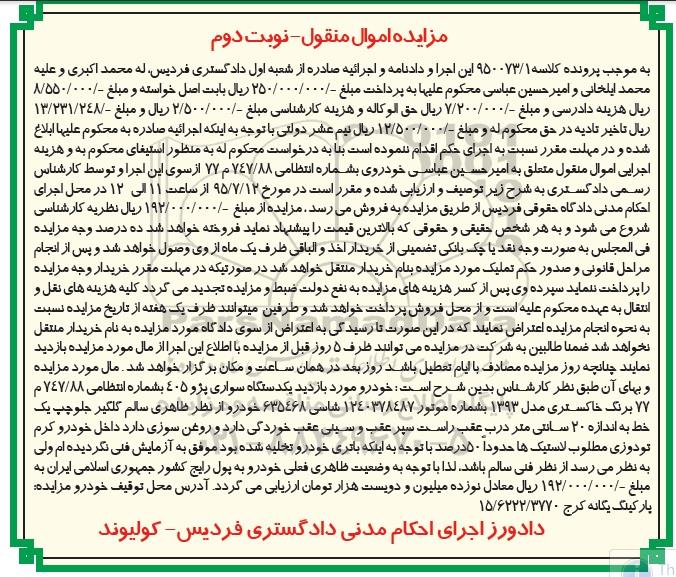 مزایده اموال منقول-نوبت دوم
به موجب پرونده کلاسه ۹۵۰۰۷۳/۱ این اجرا و دادنامه و اجرائیه صادره از شعبه اول دادگستری فردیس، له محمد اکبری و علیه
محمد ایلخانی و امیرحسین عباسی محکوم علیها به پرداخت مبلغ -/۲۵۰/۰۰۰/۰۰۰ ریال بابت اصل خواسته و مبلغ -/۸/۵۵۰/۰۰۰
ریال هزینه دادرسی و مبلغ -/۷/۲۰۰/۰۰۰ ریال حق الوکاله و هزینه کارشناسی مبلغ -/۲/۵۰۰/۰۰۰ ریال و مبلغ -/۱۳/۲۳۱/۲۴۸
ریال تاخیر تادیه در حق محکوم له و مبلغ -/۱۲/۵۰۰/۰۰۰ ریال نیم عشر دولتی با توجه به اینکه اجرائیه صادره به محکوم علیها ابلاغ
شده و در مهلت مقرر نسبت به اجرای حکم اقدام ننموده است بنا به درخواست محکوم له به منظور استیفای محکوم به و هزینه
اجرایی اموال منقول متعلق به امیرحسین عباسی خودروی بشماره انتظامی ۷۴۷/۸۸ م ۷۷ ازسوی این اجرا و توسط کارشناس
رسمی دادگستری به شرح زیر توصیف و ارزیابی شده و مقرر است در مورخ ۹۵/۷/۱۲ از ساعت ۱۱ الی ۱۲ در محل اجرای
احکام مدنی دادگاه حقوقی فردیس از طریق مزایده به فروش می رسد، مزایده از مبلغ -/۱۹۲/۰۰۰/۰۰۰ ریال نظریه کارشناسی
شروع می شود و به هر شخص حقیقی و حقوقی که بالاترین قیمت را پیشنهاد نماید فروخته خواهد شد ده درصد وجه مزایده
فی المجلس به صورت وجه نقد یا چک بانکی تضمینی از خریدار اخذ و الباقی ظرف یک ماه از وی وصول خواهد شد و پس از انجام
مراحل قانونی و صدور حکم تملیک مورد مزایده بنام خریدار منتقل خواهد شد در صورتیکه در مهلت مقرر خریدار وجه مزایده
را پرداخت ننماید سپرده وی پس از کسر هزینه های مزایده به نفع دولت ضبط و مزایده تجدید می گردد کلیه هزینه های نقل و
انتقال به عهده محکوم علیه است و از محل فروش پرداخت خواهد شد و طرفین میتوانند ظرف یک هفته از تاریخ مزایده نسبت
به نحوه انجام مزایده اعتراض نمایند که در این صورت تا رسیدگی به اعتراض از سوی دادگاه مورد مزایده به نام خریدار منتقل
نخواهد شد ضمنا طالبین به شرکت در مزایده می توانند ظرف ۵ روز قبل از مزایده با اطلاع این اجرا از مال مورد مزایده بازدید
نمایند چنانچه روز مزایده مصادف با ایام تعطیل باشد روز بعد در همان ساعت و مکان برگزار خواهد شد. مال مورد مزایده
و بهای آن طبق نظر کارشناس بدین شرح است: خودرو مورد بازدید یکدستگاه سواری پژو ۴۰۵ بشماره انتظامی ۷۴۷/۸۸ م
۷۷ برنگ خاکستری مدل ۱۳۹۳ بشماره موتور ۱۲۴۰۳۷۸۴۸۷ شاسی ۶۳۵۴۶۸ خودرو از نظر ظاهری سالم گلگیر جلو چپ یک
خط به اندازه ۲۰ سانتی متر درب عقب راست سپر عقب و سینی عقب خوردگی دارد و روغن سوزی دارد داخل خودرو کرم
تودوزی مطلوب لاستیک ها حدوداً ۵۰درصد با توجه به اینکه باتری خودرو تخلیه شده بود موفق به آزمایش فنی نگردیده ام ولی
به نظر می رسد از نظر فنی سالم باشد، لذا با توجه به وضعیت ظاهری فعلی خودرو به پول رایج کشور جمهوری اسلامی ایران به
مبلغ -/۱۹۲/۰۰۰/۰۰۰ ریال معادل نوزده میلیون و دویست هزار تومان ارزیابی می گردد. آدرس محل توقیف خودرو مزایده:
پارکینگ یگانه کرج ۱۵/۶۲۲۲/۳۷۷۰
دادورز اجرای احکام مدنی دادگستری فردیس- کولیوند